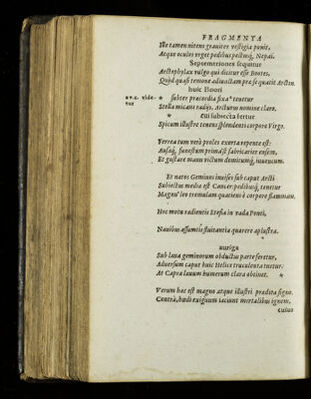 FRAGMENTA
Ille tamen nitens graviter vestigia ponit,
Atque oculos urget pedibus pectusq; Nepai.
Septemtriones sequitur
Arctophylax vulgo qui dicitur esse Bootes,
Quòd quasi temone adiunctam præ se quatit Arctũ
huic Booti
* subter præcordia fixa tenetur
Stella micans radijs, Arcturus nomine claro.
* cui subiecta fertur
Spicum illustre tenens splendenti corpore Virgo.
Verrea tum verò proles exorta repente est:
Ausaq; funestum prima est fabricarier ensem,
Et gustare manu victum domitumq; iuvencum.
Et natos Geminos inuises sub caput Arcti
Subiectus media est Cancer, pedibusq; tenetur
Magnu' leo tremulam quatiens è corpore flammam.
Hoc motu radiantis Etesiæ in vada Ponti,
Navibus assumtis fluitantia quærere aplustra.
auriga
Sub læva geminorum obductus parte feretur,
Adversum caput huic Helice truculenta tuetur.
At Capra lævum humerum clara obtinet. *
Verum hæc est magno atque illustri prædita signo.
Contrà, hœdi exiguum iaciunt mortalibus ignem.
cuius